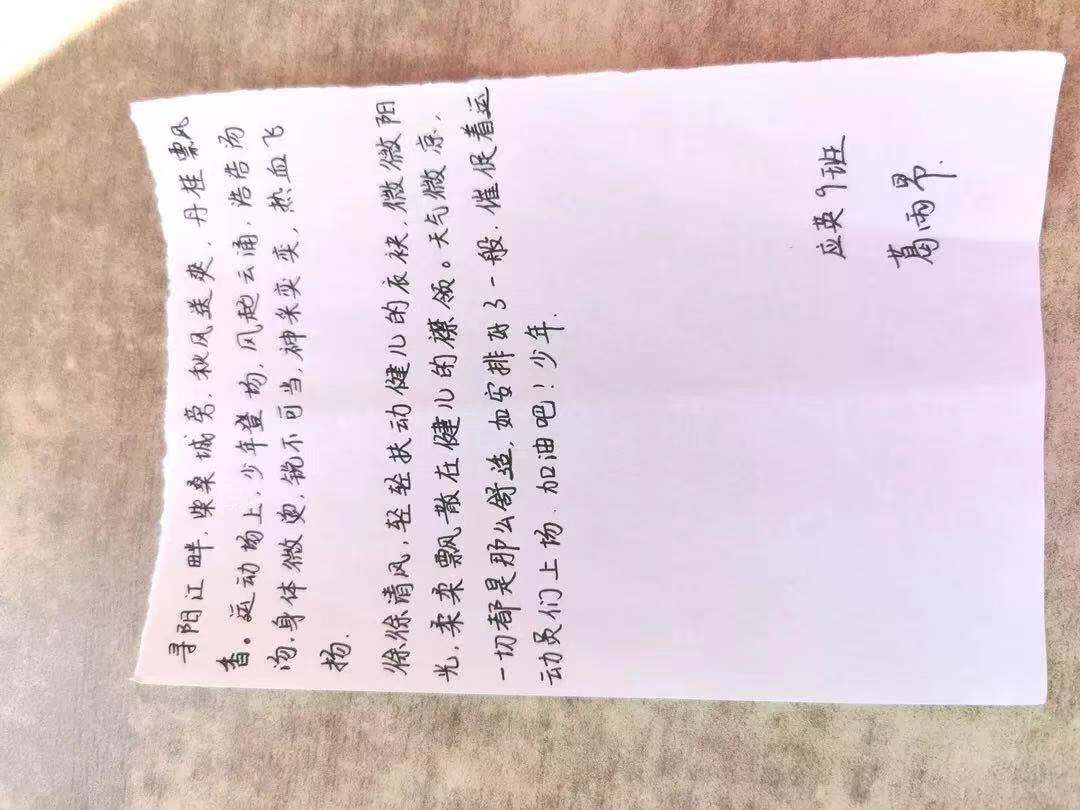 寻阳江畔,柴桑城旁,秋风送爽,丹桂飘
香。运动场上,少年登场,风起云涌,浩浩汤
汤,身体微烫,锐不可当,神采奕奕,热血飞
扬.
徐徐清风,轻轻扶动健儿的衣袂,微微阳
光,柔柔飘散在健儿的襟领。天气微凉,
一切都是那么舒适,如安排好了一般,催促着运
动员们上场,加油吧!少年.
应英9班
葛雨昂.